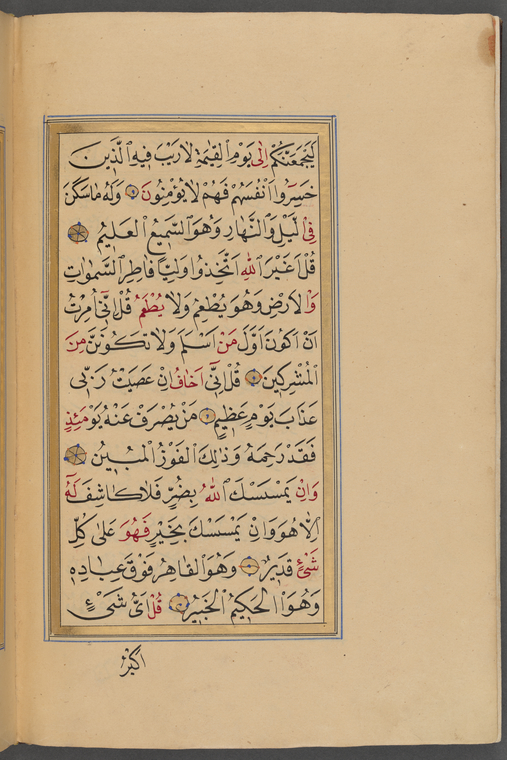 لَيَجْمَعَنَّكُمْ اِلٰى يَوْمِ الْقِيٰمَةِ لَارَيْبَ فِيهِ اَلَّذِينَ
خَسِرُٓوا اَنْفُسَهُمْ فَهُمْ لَا يُؤْمِنُونَ وَلَهُ مَاسَكَنَ
فِى الَّيْلِ وَالنَّهَارِ وَهُوَ السَّمِيعُ الْعَلِيمُ
قُلْ اَغَيْرَ اللّٰهِ اَتَّخِذُ وَلِيًّا فَاطِرِ السَّمٰوَاتِ
وَالْاَرْضِ وَهُوَ يُطْعِمُ وَلَا يُطْعَمُ قُلْ اِنِّٓى اُمِرْتُ
اَنْ اَكُونَ اَوَّلَ مَنْ اَسْلَمَ وَلَا تَكُونَنَّ مِنَ
الْمُشْرِكِينَ قُلْ اِنِّٓى اَخَافُ اِنْ عَصَيْتُ رَبِّى
عَذَابَ يَوْمٍ عَظِيمٍ مَنْ يُصْرَفْ عَنْهُ يَوْمَئِذٍ
فَقَدْ رَحِمَهُ وَذٰلِكَ الْفَوْزُ الْمُبِينُ
وَاِنْ يَمْسَسْكَ اللّٰهُ بِضُرٍّ فَلَا كَاشِفَ لَهُٓ
اِلَّا هُوَ وَاِنْ يَمْسَسْكَ بِخَيْرٍ فَهُوَ عَلٰى كُلِّ
شَىْءٍ قَدِيرٌ وَهُوَ الْقَاهِرُ فَوْقَ عِبَادِهِ
وَهُوَ الْحَكِيمُ الْخَبِيرُ قُلْ اَىُّ شَىْءٍ
اَكْبَرُ